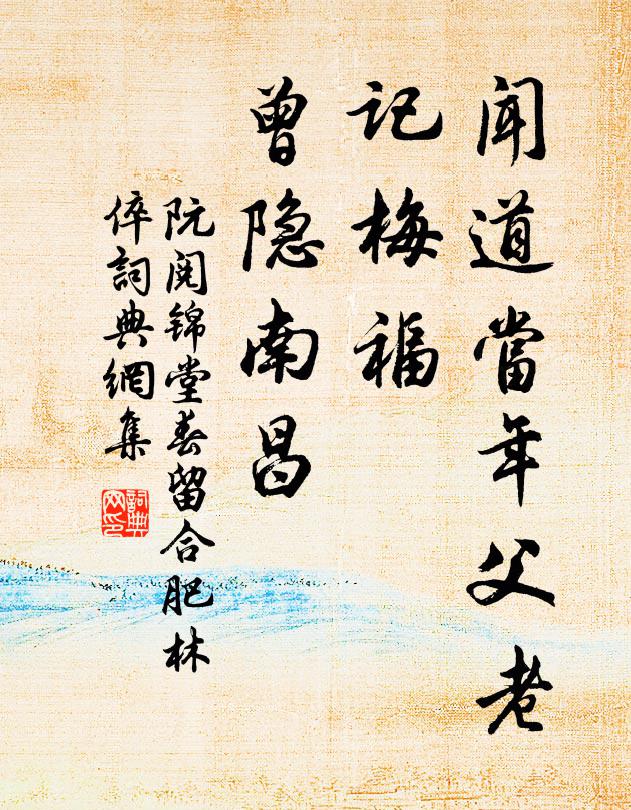 闻道當年父老
记梅福
曾隐南昌
阮阅锦堂春留合肥林
倅詞典網集
詞典网印